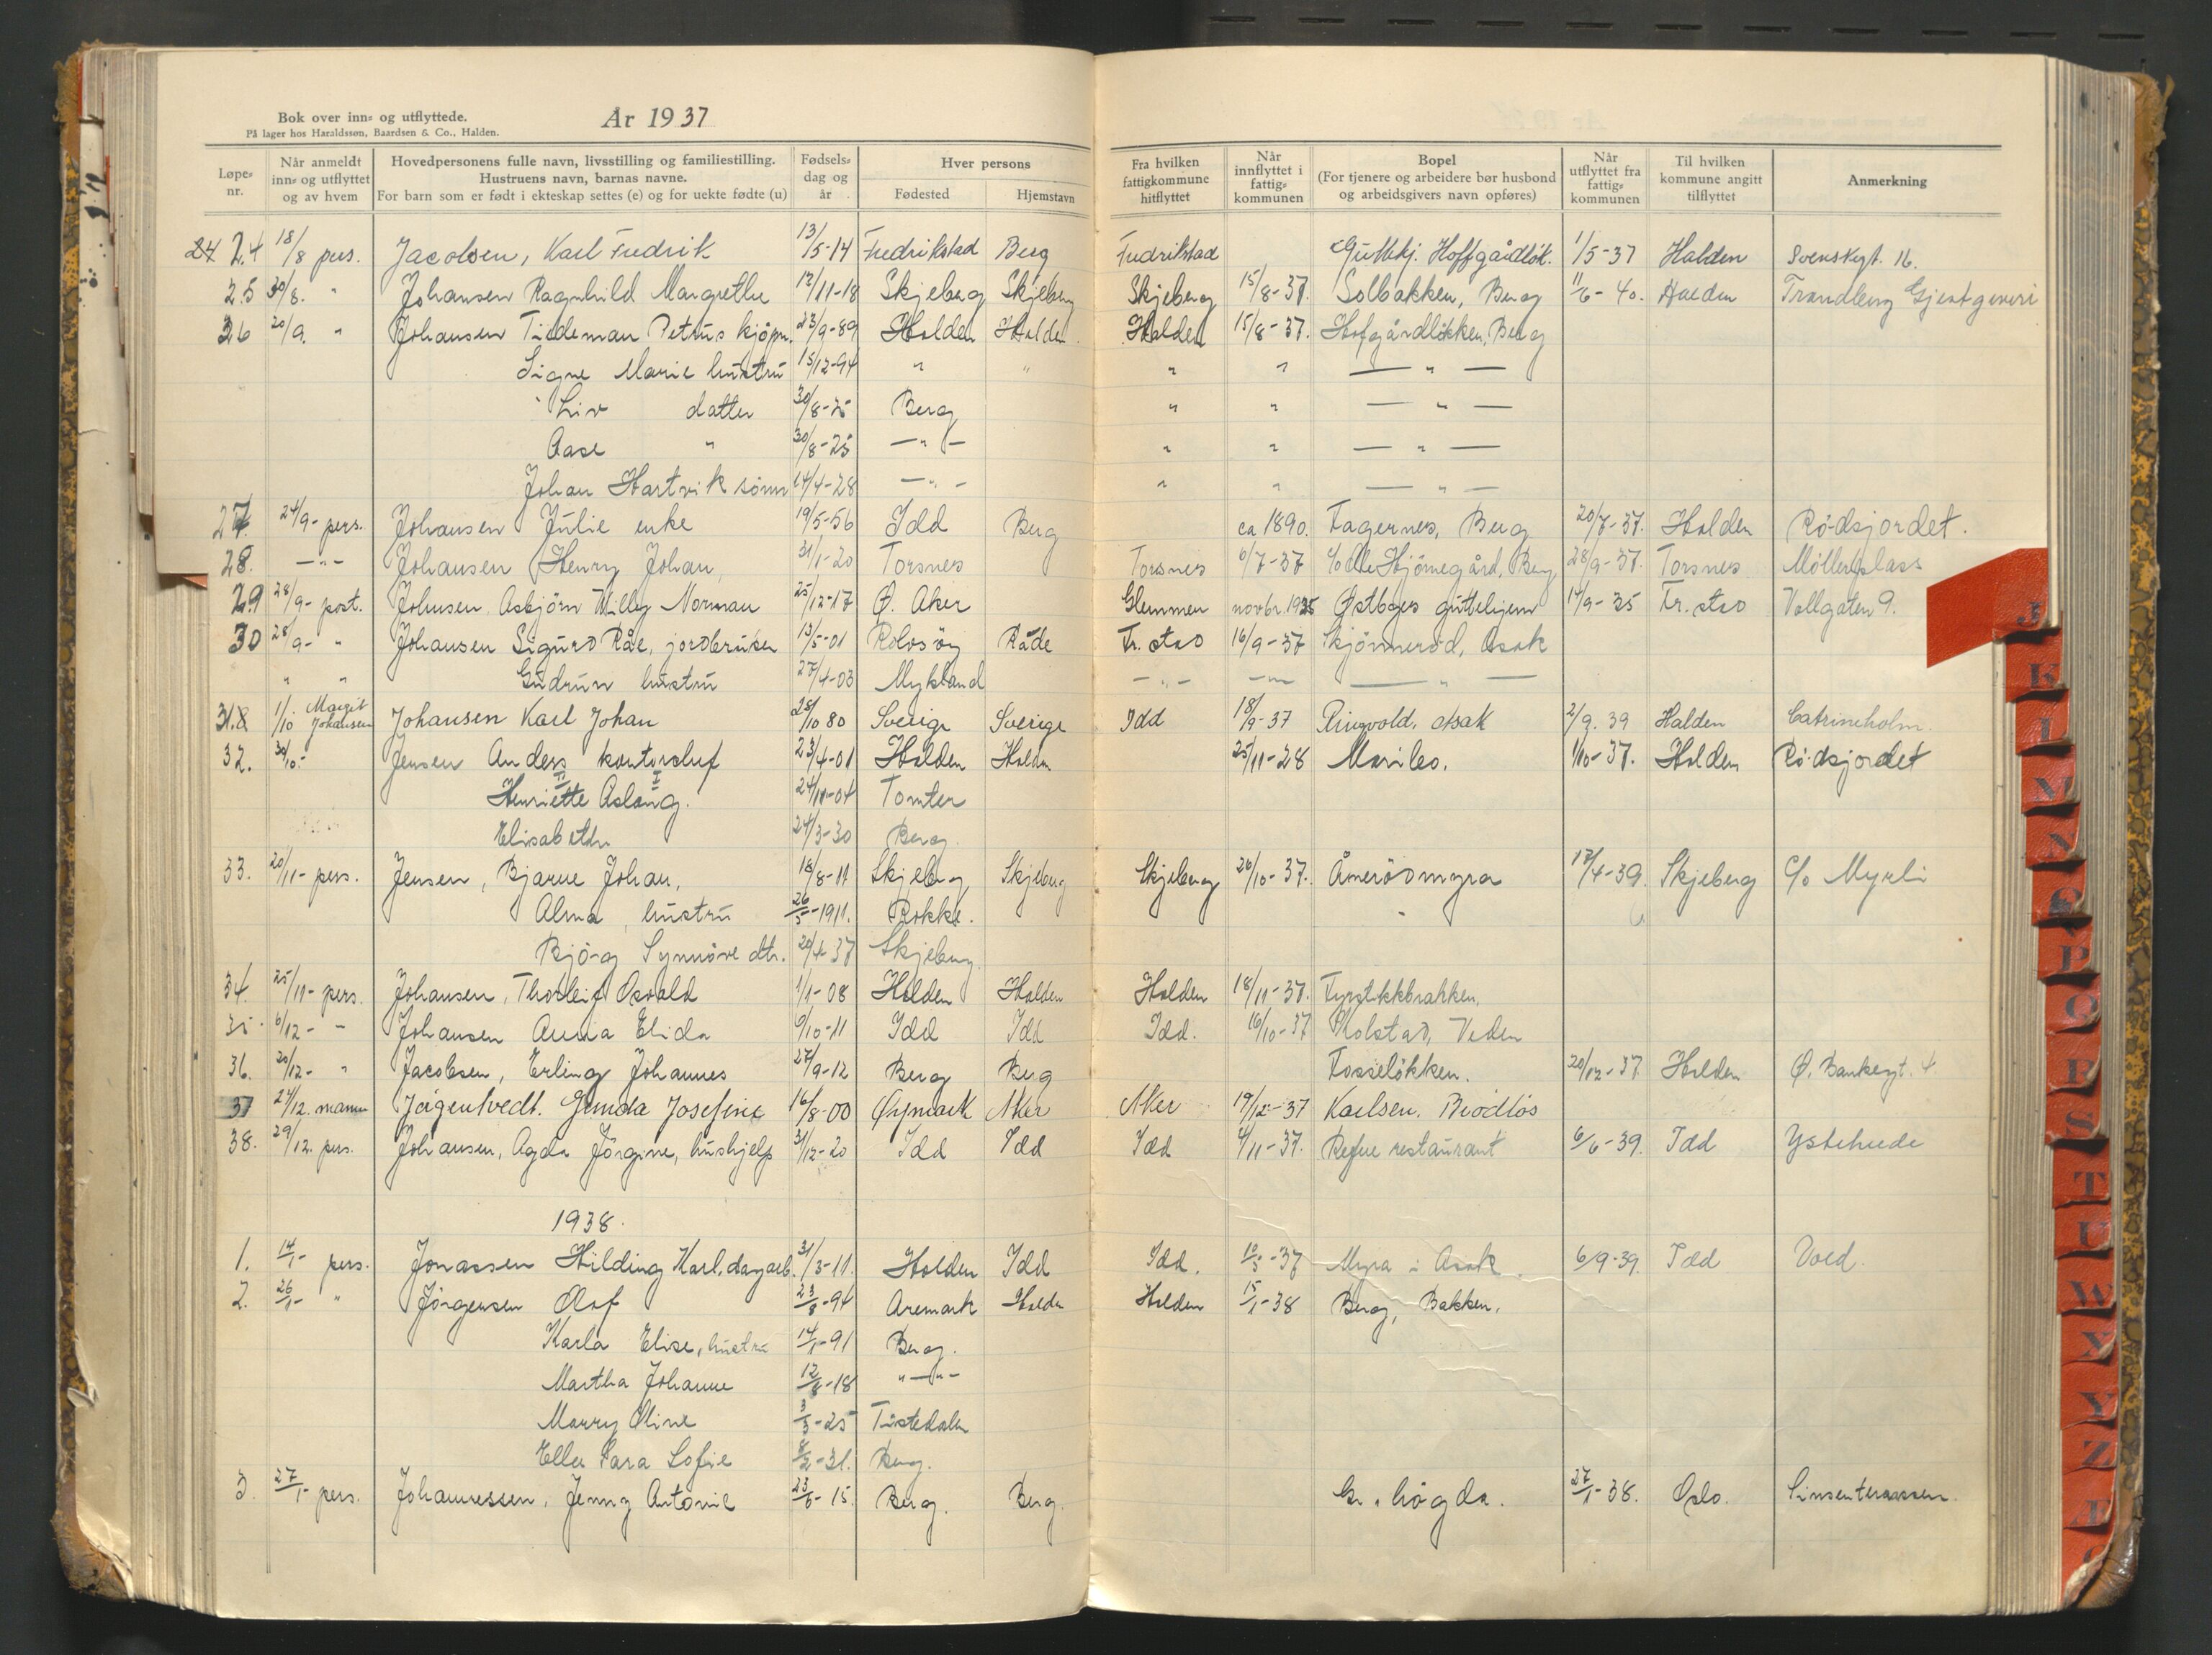 Bok over inn= og utflyttede.
På lager hos Haraldssøn, Baardsen & Co., Halden.
År 1937
Løpe=nr. Når anmeldt inn= og utflyttet og av hvem Hovedpersonens fulle navn, livsstilling og familiestilling. Hustruens navn, barnas navne. For barn som er født i ekteskap settes (e) og for uekte fødte (u) Fødsels=dag og år Hver persons Fødested Hjemstavn Fra hvilken fattigkommune hitflyttet Når innflyttet i fattig=kommunen Bopel (For tjenere og arbeidere bør husbond og arbeidsgivers navn opføres) Når utflyttet fra fattig=kommunen Til hvilken kommune angitt tilflyttet Anmerkning
24 24 18/8 pers. Jacobsen, Karl Fredrik 13/5-14 Fredrikstad Berg Fredrikstad Guttehj. Hoffgårdløk. 1/5-37 Halden Svenskegt. 16.
25 30/8. " Johansen Ragnhild Margrethe 12/11-18 Skjeberg Skjeberg Skjeberg 15/8-37. Solbakken, Berg 11/6-40. Halden Trandberg Gjestgiveri
26 20/9. " Johansen Tideman Petrus kjøpm. 23/9-89 Halden Halden Halden 15/8-37. Hofgårdløkken, Berg
Signe Marie hustru 15/12-94 " " " " — " —
Liv datter 30/8-25 Berg " " — " —
Aase " 30/8-25 — " — " " — " —
Johan Hartvik sønn 14/4-28 — " — " " — " —
27. 24/9- pers. Johansen Julie enke 19/5-56 Idd Berg ca 1890. Fagernes, Berg 20/7-37. Halden Rødsjordet.
28. — " — Johansen Henry Johan 31/1-20 Torsnes Torsnes 6/7-37 c/o Hjørnegård, Berg 28/9-37. Torsnes Møllerplass
29 28/9- post. Johnsen Asbjørn Willy Norman 25/12-17 Ø. Aker Glemmen novbr. 1925 Østbyes guttehjem 14/9-35 Fr.stad Vollgaten 9.
30 28/9- " Johansen Sigurd Råe, jordbruker 13/5-01 Rolvsøy Råde Fr.stad 16/9-37 Skjønnerød, Asak
" " Gudrun hustru 27/4-03 Mykland — " — — " — — " —
31. 1/10 Margit Johansen Johansen Karl Johan 28/10 80 Sverige Sverige Idd 18/9-37 Ringvold, Asak 2/9. 39 Halden Catrineholm.
32. 30/10.- Jensen Anders kontorchef 23/4-01 Halden Halden 25/11-28 Marileo. 1/10-37. Halden Rødsjordet
II I
Henriette Aslaug. 24/11-04 Tomter
Elisabeth 24/3-30 Berg.
33. 20/11- pers. Jensen, Bjarne Johan, 18/8-11 Skjeberg Skjeberg Skjeberg 26/10-37. Åmerødmyra 17/4-39. Skjeberg c/o Myrli
Alma, hustru 26/5-1911. Rokke. "
Bjørg Synnøve dtr. 20/4-37 Skjeberg
34. 25/11- pers. Johansen, Thorleif Osvald 1/1-08 Halden Halden Halden 18/11-37. Fyrstikkbrakken.
35. 6/12- - Johansen Anna Elida 9/10-11 Idd Idd Idd. 16/10-37 Kolstad, Veden
36. 20/12- " Jacobsen, Erling Johannes 27/9-12 Berg Berg Fosseløkken. 20/12-37 Halden Ø. Bankegt. 4.
37 27/12. mannen Jørgentvedt. Gunda Josefine 16/8-00 Øymark Aker Aker 19/12-37 Karlsen. Brødløs
38. 29/12. pers. Johansen, Agda Jørgine, hushjelp 31/12-20 Idd Idd Idd 4/11-37. Refne restaurant 6/6-39. Idd Ystehede
1938.
1. 14/1- pers. Jonassen Hilding Karl, dagarb. 31/3-11. Halden Idd Idd. 10/3-37 Myra i Asak. 6/9-39. Idd Vold.
2. 26/1- " Jørgensen Olaf 23/8-94 Aremark Halden Halden 15/1-38 Berg, Bakken.
Karla Elise, hustru 14/1-91 Berg.
Martha Johanne 12/8-18 " — " —
Marry Oline 3/3-25 Tistedalen
Ellen Sara Sofie 8/2-31. Berg.
3. 27/1- pers. Johannessen, Jenny Antonie 23/6-15. Berg. Berg. høgda. 27/1-38. Oslo. Sinsenterassen.
J
K
L
M
N
O
P
Q
R
S
T
U
W
X
Y
Z